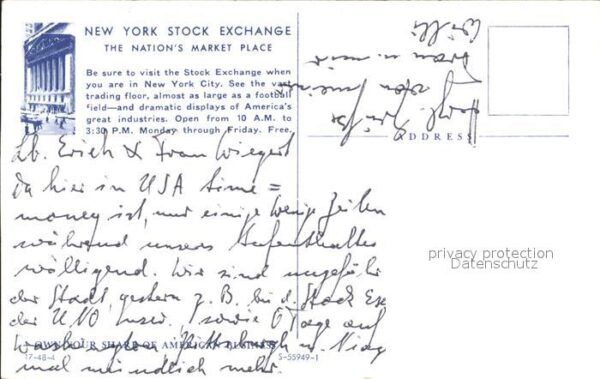 NEW YORK STOCK EXCHANGE
THE NATION'S MARKET PLACE
Be sure to visit the Stock Exchange when
you are in New York City. See the vast
trading floor, almost as large as a football
field—and dramatic displays of America's
great industries. Open from 10 A.M. to
3:30 P.M. Monday through Friday. Free.
ADDRESS
Lb. Erich & Frau Wiegert
da hier in USA time =
money ist, nur einige wenige Zeilen
während unseres Aufenthaltes
Wir sind ungefähr
der Stadt, gestern z. B. bei d. Stock Ex
der UNO sowie 6 Tage auf
Pittsburgh u. Niag
mal mündlich mehr.
Herzl. Grüße
von
Frau u. mir
Willi
OWN YOUR SHARE OF AMERICAN BUSINESS
17-48-4
S-55949-1
privacy protection
Datenschutz